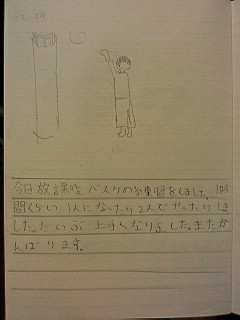 今日放課後バスケの練習をしました。1時
間くらい1人になったり2人でやったりしま
した。だいぶ上手くなりました。またが
んばります。